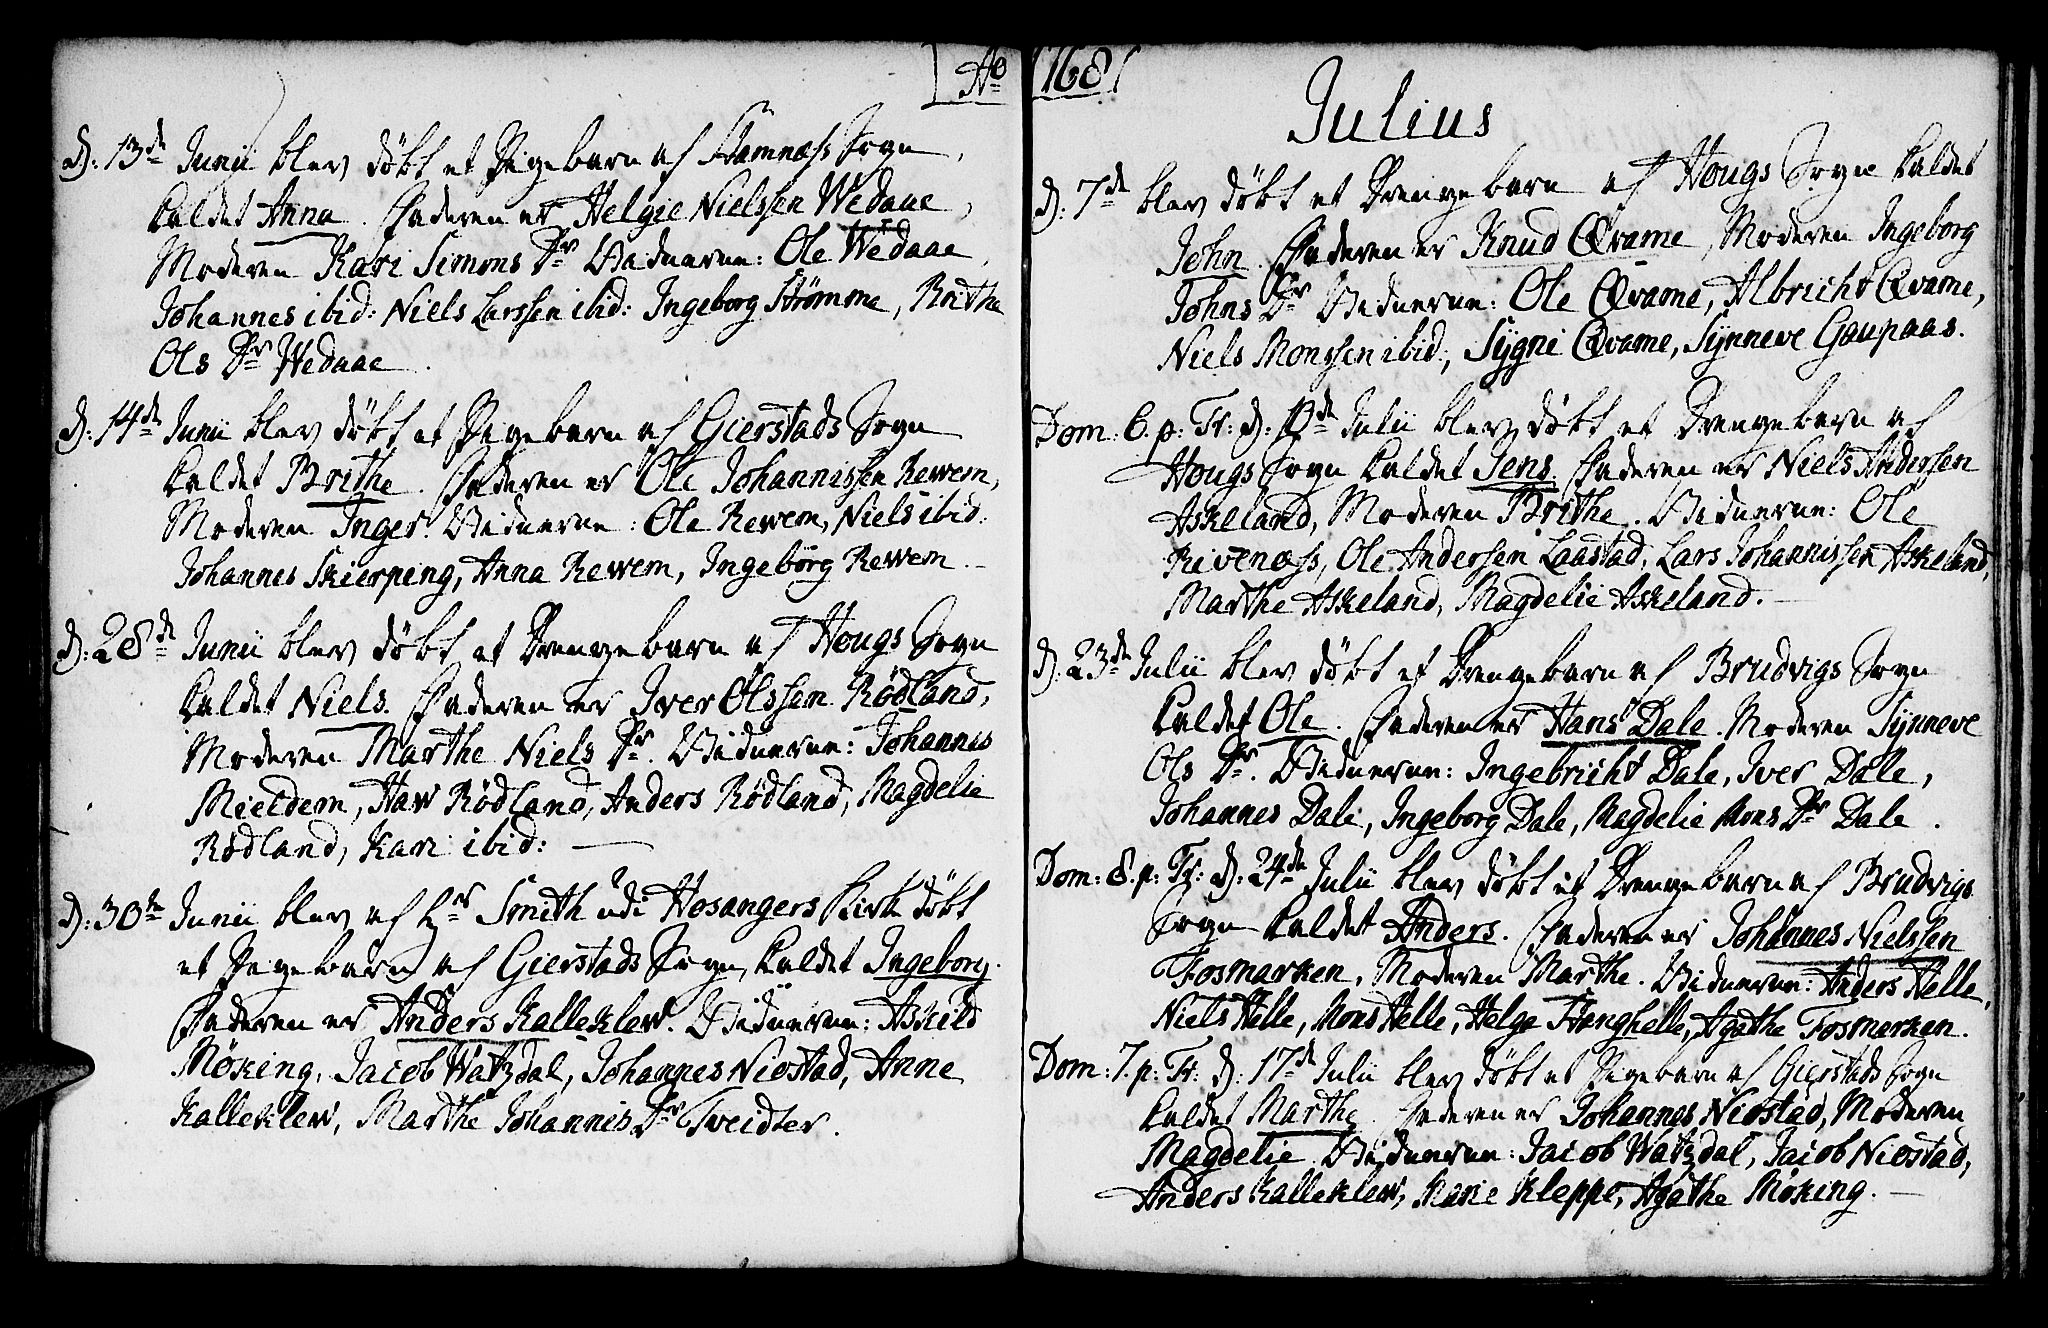 Ao 1768
d: 13de Junii blev døbt et Pigebarn af Stamnæss Sogn,
kaldet Anna. Faderen er Helgie Nielssen Wedaae,
Moderen Kari Simons Dr Vidnerne: Ole Wedaae,
Johannes ibid: Niels Larssen ibid: Ingeborg Strömme, Brithe
Ols Dr Wedaae.
d: 14de Junii blev døbt et Pigebarn af Gierstads Sogn
kaldet Brithe. Faderen er Ole Johannissen Rewem,
Moderen Inger. Vidnerne: Ole Rewem, Niels ibid:
Johannes Skierpeng, Anna Rewem, Ingebörg Rewem.
d: 28de Junii blev døbt et Drengebarn af Hougs Sogn
kaldet Niels. Faderen er Iver Olssen Rödland,
Moderen Marthe Niels Dr. Vidnerne: Johannes
Mieldem, Haw Rödland, Anders Rödland, Magdelie
Rödland, Kari ibid:
d: 30te Junii blev af Hr Smith udi Hosangers Kirke døbt
et Pigebarn af Gierstads Sogn, kaldet Ingeborg.
Faderen er Anders Kalleklew. Vidnerne: Askild
Möking, Jacob Watzdal, Johannes Niostad, Anne
Kalleklew, Marthe Johannis Dr Tveidter.
Julius
d: 7de blev døbt et Drengebarn af Hougs Sogn kaldet
John. Faderen er Knud Qvame, Moderen Ingeborg
Johns Dr Vidnerne: Ole Qvame, Albricht Qvame,
Niels Monssen ibid:, Sygni Qvame, Synneve Gaupaas.
Dom: 6. p: Tr: d: Julii blev døbt et Drengebarn af
Hougs Sogn kaldet Jens. Faderen er Niels Andersen
Askeland, Moderen Brithe. Vidnerne: Ole
Rivenæss, Ole Andersen Laastad, Lars Johannissen Askeland,
Marthe Askeland, Magdelie Askeland.
d: 23de Julii blev døbt et Drengebarn af Brudvigs Sogn
kaldet Ole. Faderen er Hans Dale. Moderen Synneve
Ols Dr. Vidnerne: Ingebricht Dale, Iver Dale,
Johannes Dale, Ingeborg Dale, Magdelie Mons Dr Dale.
Dom: 8. p: Tr: d: 24de Julii blev døbt et Drengebarn af Brudvigs
Sogn kaldet Anders. Faderen er Johannes Nielssen
Fosmarken, Moderen Marthe. Vidnerne: Anders Helle,
Niels Helle, Mons Helle, Helge Stanghelle, Agathe Fosmarken.
Dom: 7. p: Tr: d: 17de Julii blev døbt et Pigebarn af Gierstads Sogn
kaldet Marthe. Faderen er Johannes Niostad, Moderen
Magdelie. Vidnerne: Jacob Watzdal, Jacob Niostad,
Anders Kalleklew, Marie Kleppe, Agathe Möking.